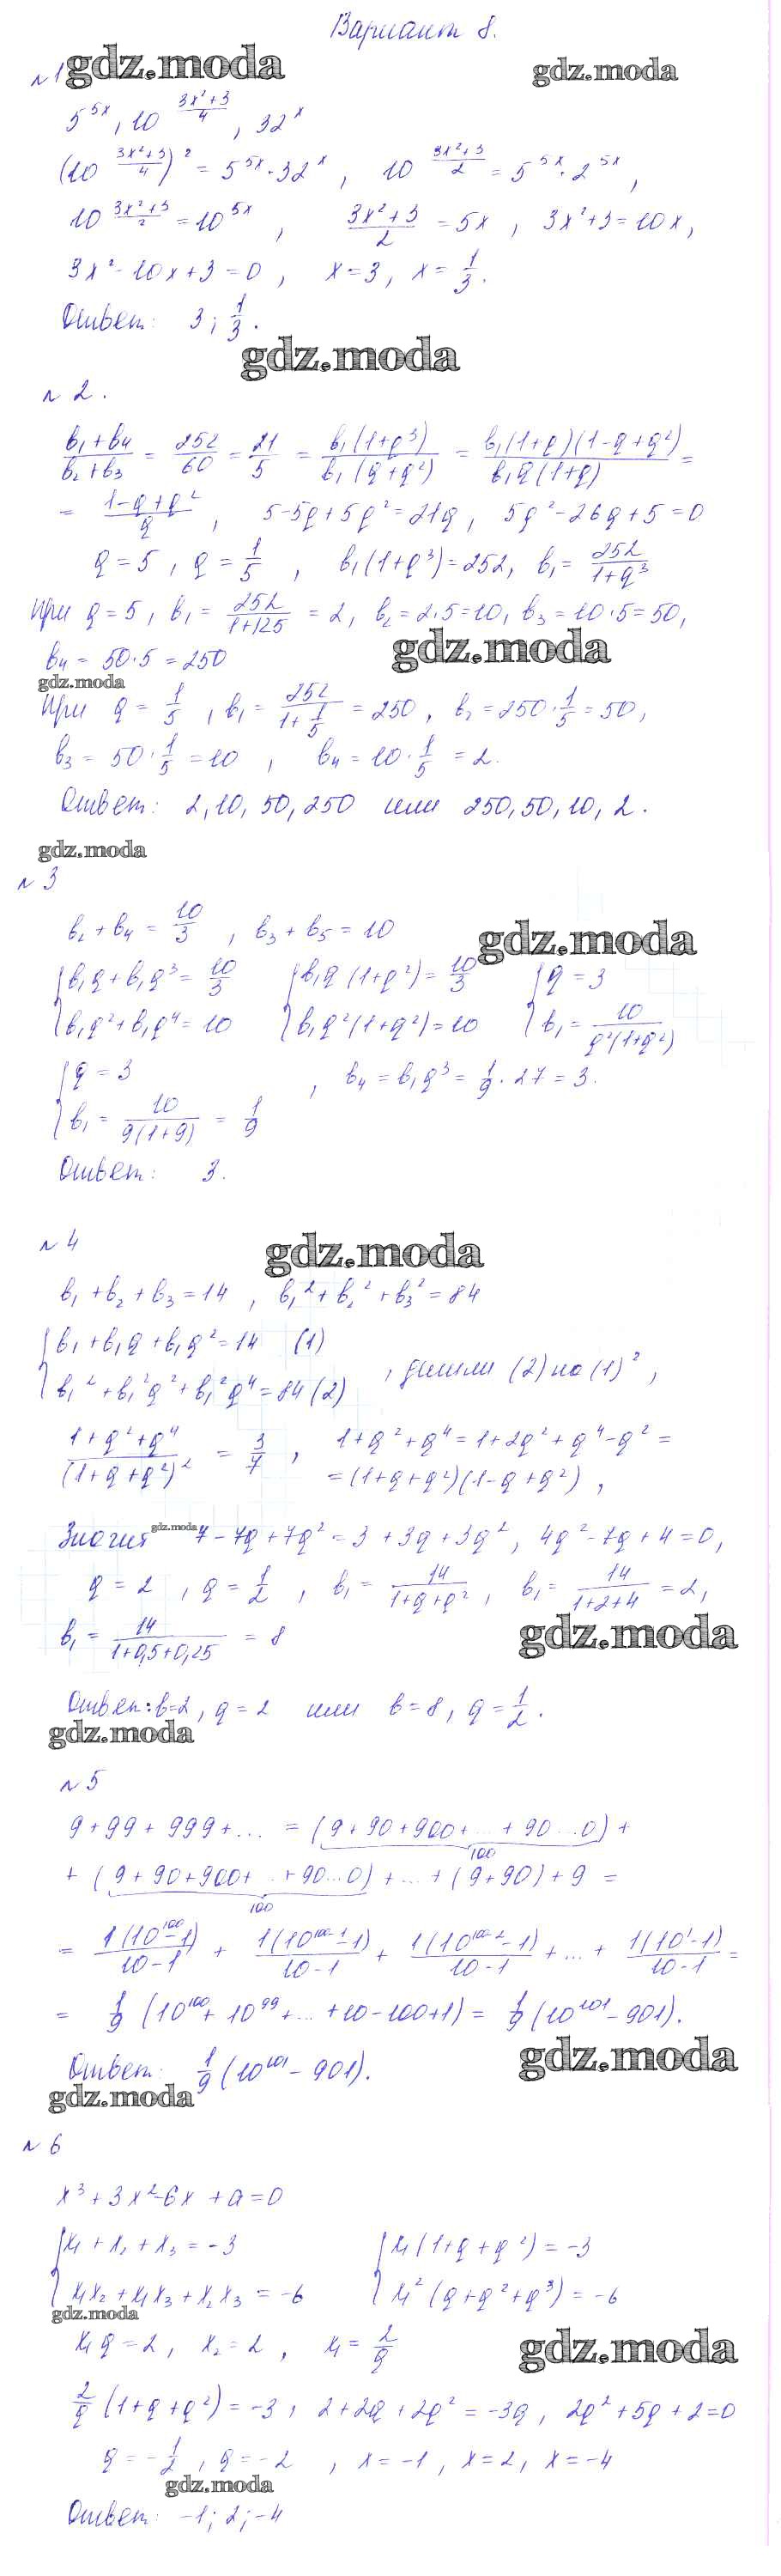 Вариант 8.
№1 gdz.moda gdz.moda
5^(5x), 10^((3x²+3)/4), 32^x
(10^((3x²+3)/4))² = 5^(5x)·32^x, 10^((3x²+3)/2) = 5^(5x)·2^(5x),
10^((3x²+3)/2) = 10^(5x), (3x²+3)/2 = 5x, 3x²+3=10x,
3x²-10x+3=0, x=3, x=1/3.
Ответ: 3; 1/3.
gdz.moda
№2.
(b₁+b₄)/(b₂+b₃) = 252/60 = 21/5 = b₁(1+q³)/(b₁(q+q²)) = b₁(1+q)(1-q+q²)/(b₁q(1+q)) =
= (1-q+q²)/q, 5-5q+5q²=21q, 5q²-26q+5=0
q=5, q=1/5, b₁(1+q³)=252, b₁=252/(1+q³)
при q=5, b₁=252/(1+125)=2, b₂=2·5=10, b₃=10·5=50,
b₄=50·5=250 gdz.moda
gdz.moda
При q=1/5, b₁=252/(1+1/5)=250, b₂=250·1/5=50,
b₃=50·1/5=10, b₄=10·1/5=2.
Ответ: 2,10,50,250 или 250,50,10,2.
gdz.moda
№3
b₂+b₄=10/3, b₃+b₅=10 gdz.moda
{b₁q+b₁q³=10/3 {b₁q(1+q²)=10/3 {q=3
{b₁q²+b₁q⁴=10 {b₁q²(1+q²)=10 {b₁=10/(q²(1+q²))
{q=3
{b₁=10/(9(1+9))=1/9, b₄=b₁q³=1/9·27=3.
Ответ: 3.
№4 gdz.moda
b₁+b₂+b₃=14, b₁²+b₂²+b₃²=84
{b₁+b₁q+b₁q²=14 (1)
{b₁²+b₁²q²+b₁²q⁴=84 (2), делим (2) на (1)²,
(1+q²+q⁴)/(1+q+q²)² = 3/7, 1+q²+q⁴=1+2q²+q⁴-q²=
=(1+q+q²)(1-q+q²),
gdz.moda 7-7q+7q²=3+3q+3q², 4q²-7q+4=0,
q=2, q=1/2, b₁=14/(1+q+q²), b₁=14/(1+2+4)=2,
b₁=14/(1+0,5+0,25)=8 gdz.moda
Ответ: b=2, q=2 или b=8, q=1/2.
gdz.moda
№5
9+99+999+... = (9+90+900+...+90...0)+
100
+(9+90+900+...+90...0)+...+(9+90)+9=
100
= 1(10¹⁰⁰-1)/(10-1) + 1(10¹⁰⁰⁻¹-1)/(10-1) + 1(10¹⁰⁰⁻²-1)/(10-1) +...+ 1(10¹-1)/(10-1) =
= 1/9(10¹⁰⁰+10⁹⁹+...+10-100+1) = 1/9(10¹⁰¹-901).
Ответ: 1/9(10¹⁰¹-901). gdz.moda
gdz.moda
№6
x³+3x²-6x+a=0
{x₁+x₂+x₃=-3 {x₁(1+q+q²)=-3
{x₁x₂+x₁x₃+x₂x₃=-6 {x₁²(q+q²+q³)=-6
gdz.moda
x₁q=2, x₂=2, x₁=2/q gdz.moda
2/q(1+q+q²)=-3, 2+2q+2q²=-3q, 2q²+5q+2=0
q=-1/2, q=-2, x=-1, x=2, x=-4
gdz.moda
Ответ: -1; 2; -4